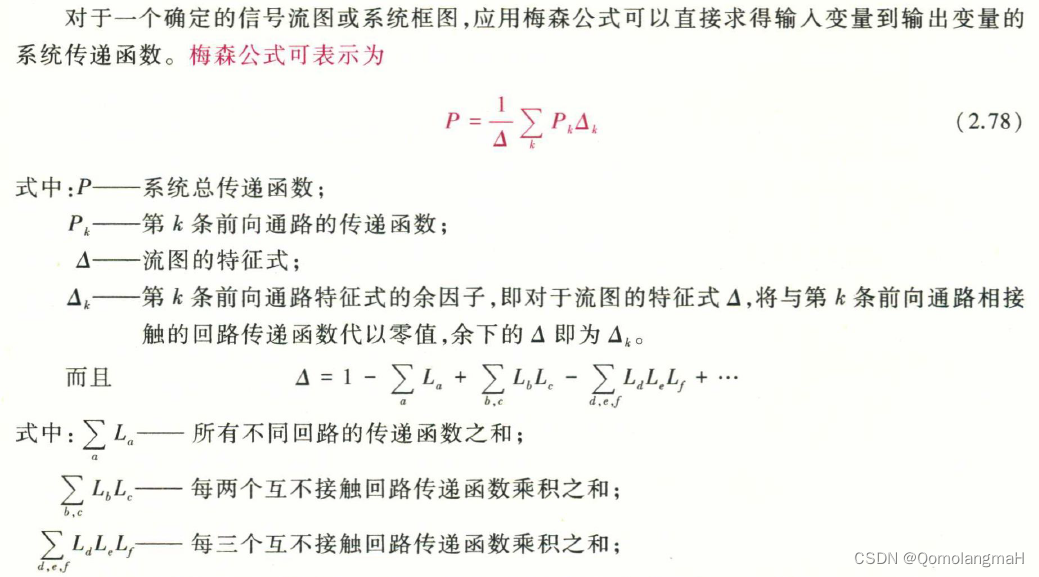 对于一个确定的信号流图或系统框图,应用梅森公式可以直接求得输入变量到输出变量的
系统传递函数。梅森公式可表示为
P = \frac{1}{Δ} \sum_{k} P_k Δ_k (2.78)
式中:P——系统总传递函数;
P_k——第 k 条前向通路的传递函数;
Δ——流图的特征式;
Δ_k——第 k 条前向通路特征式的余因子,即对于流图的特征式 Δ,将与第 k 条前向通路相接
触的回路传递函数代以零值,余下的 Δ 即为 Δ_k。
而且 Δ = 1 - \sum_{a} L_a + \sum_{b,c} L_b L_c - \sum_{d,e,f} L_d L_e L_f + ⋯
式中:\sum_{a} L_a—— 所有不同回路的传递函数之和;
\sum_{b,c} L_b L_c—— 每两个互不接触回路传递函数乘积之和;
\sum_{d,e,f} L_d L_e L_f—— 每三个互不接触回路传递函数乘积之和;
CSDN @QomolangmaH